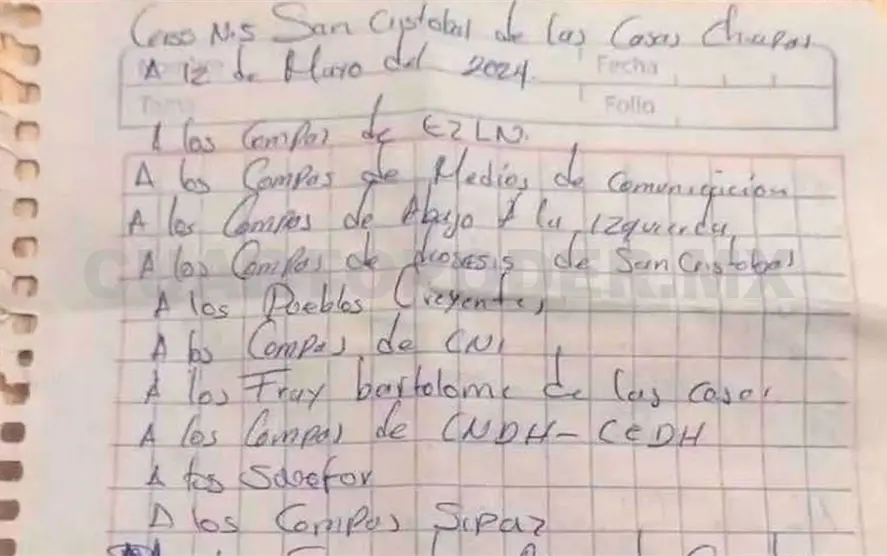 Cerss N.5 San Cristobal de las Casas Chiapas
A 12 de Mayo del 2024.
Fecha
Tema
Folio
A los Compas de EZLN.
A los Compas de Medios de Comunicacion
A los Compas de Abajo A la Izquierda
A los Compas de diosesis de San Cristobal
CUARTOPODER.MX
A los Pueblos Creyentes
A los Compas de CNI
A los Fray bartolome de las casas
A los Compas de CNDH-CEDH
A los
A los Compas Sipaz